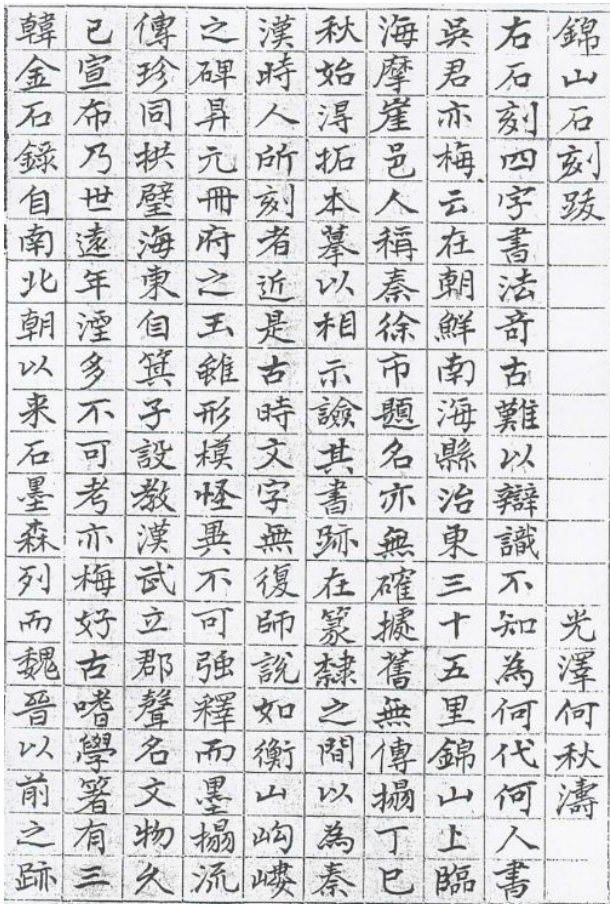 錦山石刻跋 光澤何秋濤
右石刻四字書法奇古難以辯識不知為何代何人書
吳君亦梅云在朝鮮南海縣治東三十五里錦山上臨
海摩崖邑人稱秦徐市題名亦無確據舊無傳搨丁巳
秋始淂拓本摹以相示譣其書跡在篆隸之間以為秦
漢時人所刻者近是古時文字無復師說如衡山岣嶁
之碑昇元冊府之玉雖形模怪異不可強釋而墨搨流
傳珍同拱璧海東自箕子設教漢武立郡聲名文物久
已宣布乃世遠年湮多不可考亦梅好古嗜學箸有三
韓金石錄自南北朝以来石墨森列而魏晉以前之跡